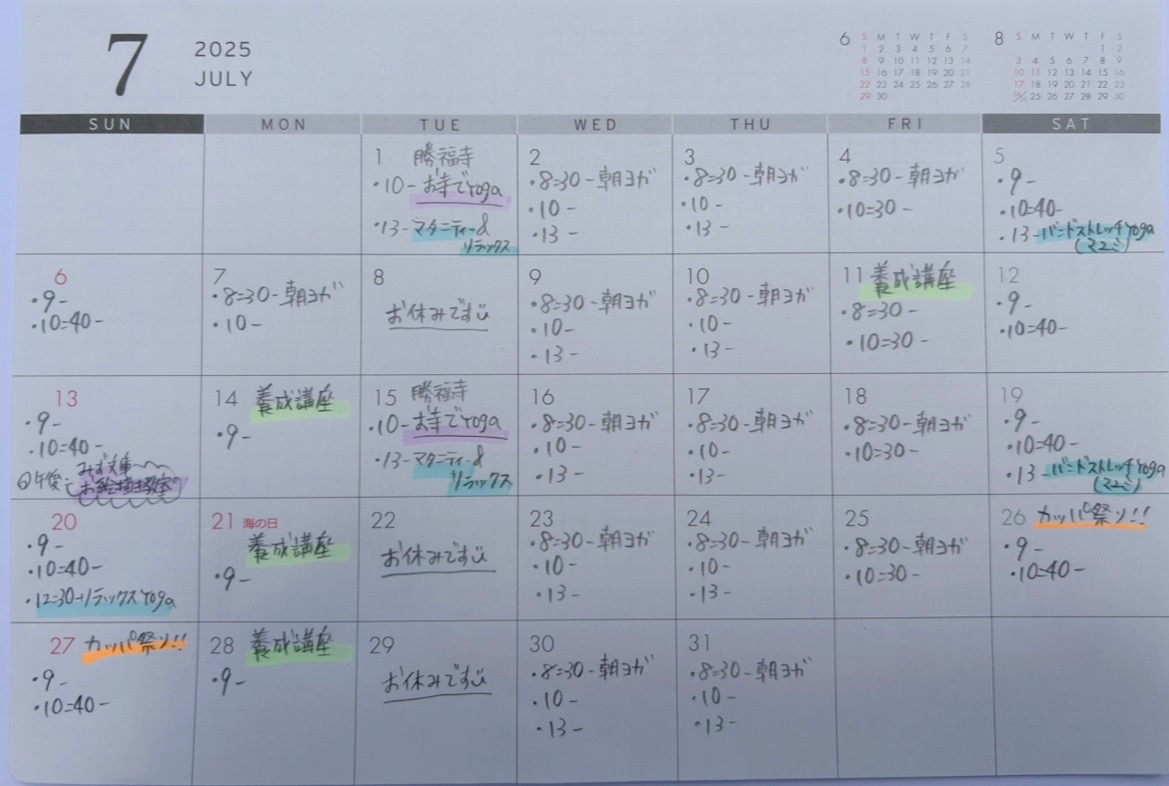 7
2025
JULY
6
S M T W T F S
1 2 3 4 5 6 7
8 9 10 11 12 13 14
15 16 17 18 19 20 21
22 23 24 25 26 27 28
29 30
8
S M T W T F S
1 2
3 4 5 6 7 8 9
10 11 12 13 14 15 16
17 18 19 20 21 22 23
24/31 25 26 27 28 29 30
SUN MON TUE WED THU FRI SAT
1 勝福寺
・10- お寺でYoga
・13-マタニティー&
リラックス
2
・8=30-朝ヨガ
・10-
・13-
3
・8=30-朝ヨガ
・10-
・13-
4
・8=30-朝ヨガ
・10=30-
5
・9-
・10=40-
・13-バンドストレッチYoga
(マユミ)
6
・9-
・10=40-
7
・8=30-朝ヨガ
・10-
8
お休みです
9
・8=30-朝ヨガ
・10-
・13-
10
・8=30-朝ヨガ
・10-
・13-
11 養成講座
・8=30-
・10=30-
12
・9-
・10=40-
13
・9-
・10=40-
午後
お絵描き教室
14 養成講座
・9-
15 勝福寺
・10-お寺でYoga
・13-マタニティー&
リラックス
16
・8=30-朝ヨガ
・10-
・13-
17
・8=30-朝ヨガ
・10-
・13-
18
・8=30-朝ヨガ
・10=30-
19
・9-
・10=40-
・13-バンドストレッチYoga
(マユミ)
20
・9-
・10=40-
・12=30-リラックスYoga
21 海の日
養成講座
・9-
22
お休みです
23
・8=30-朝ヨガ
・10-
・13-
24
・8=30-朝ヨガ
・10-
・13-
25
・8=30-朝ヨガ
・10=30-
26 カッパ祭り!!
・9-
・10=40-
27 カッパ祭り!!
・9-
・10=40-
28 養成講座
・9-
29
お休みです
30
・8=30-朝ヨガ
・10-
・13-
31
・8=30-朝ヨガ
・10-
・13-